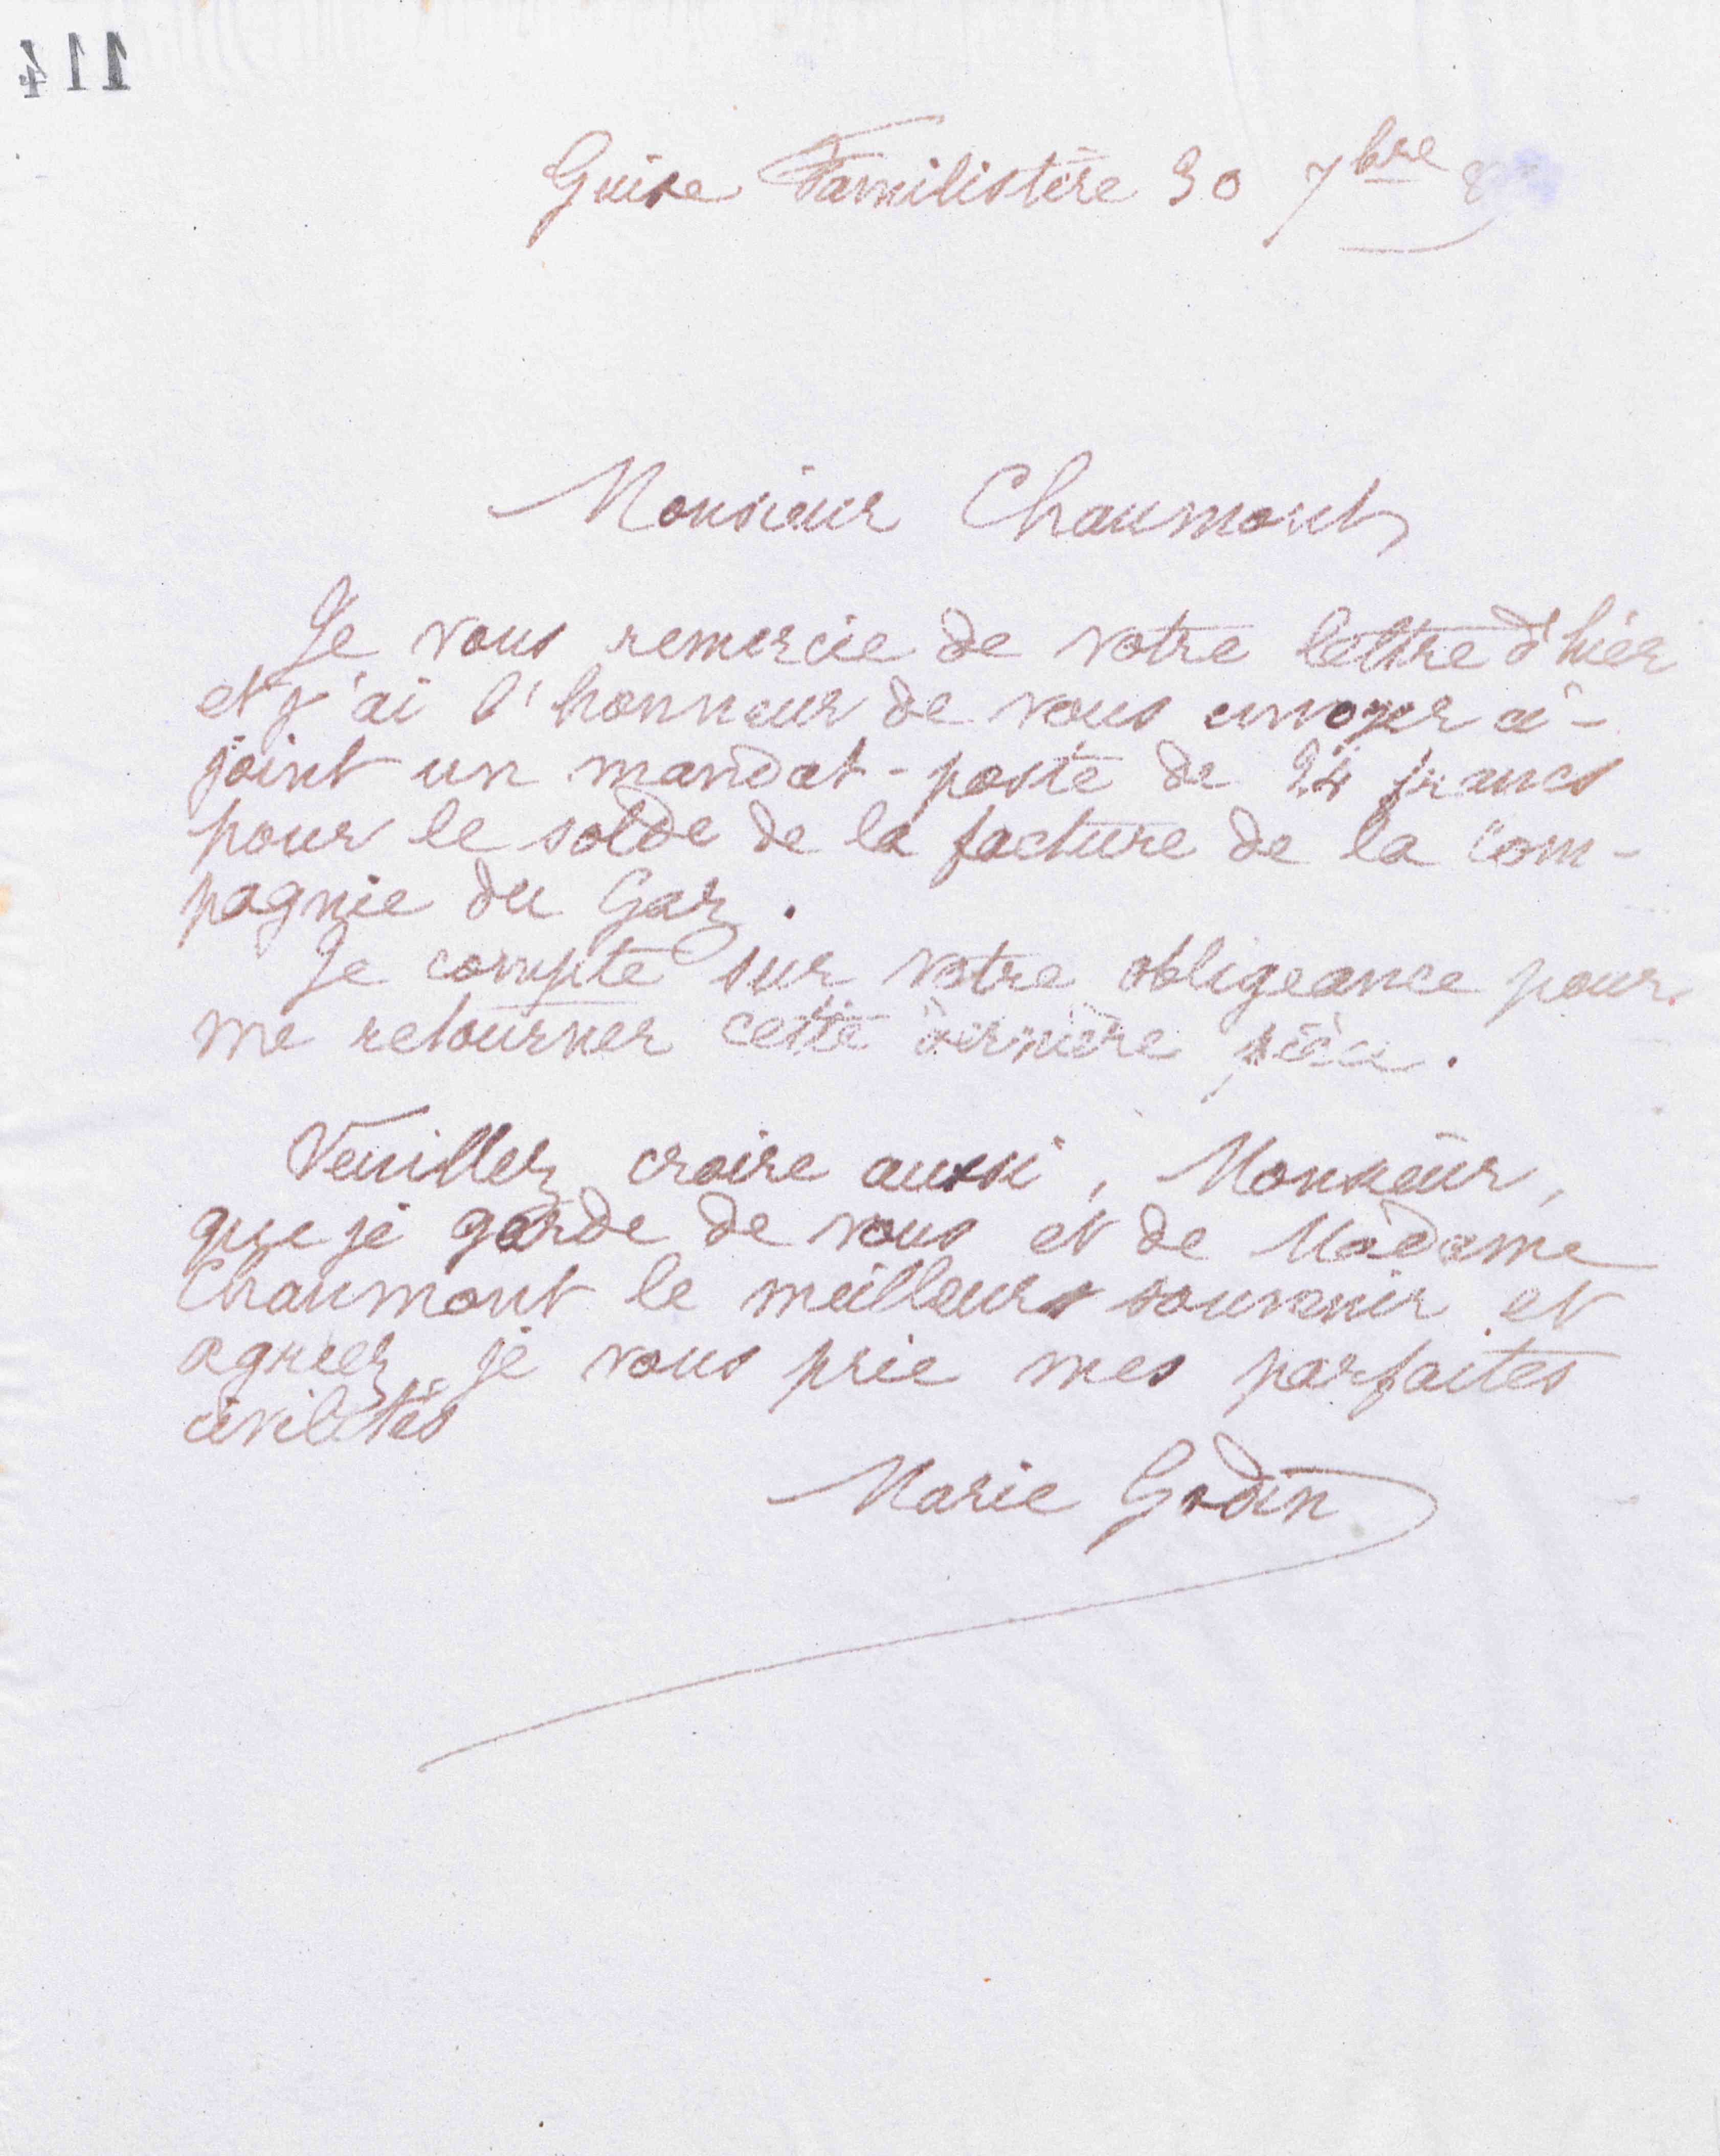 114
Guise Familistère 30 7bre 8
Monsieur Chaumont,
Je vous remercie de votre lettre d'hier
et j'ai l'honneur de vous envoyer ci-
joint un mandat-poste de 24 francs
pour le solde de la facture de la Com-
pagnie du Gaz.
Je compte sur votre obligeance pour
me retourner cette dernière pièce.
Veuillez croire aussi, Monsieur,
que je garde de vous et de Madame
Chaumont le meilleur souvenir et
agréez je vous prie mes parfaites
civilités
Marie Godin